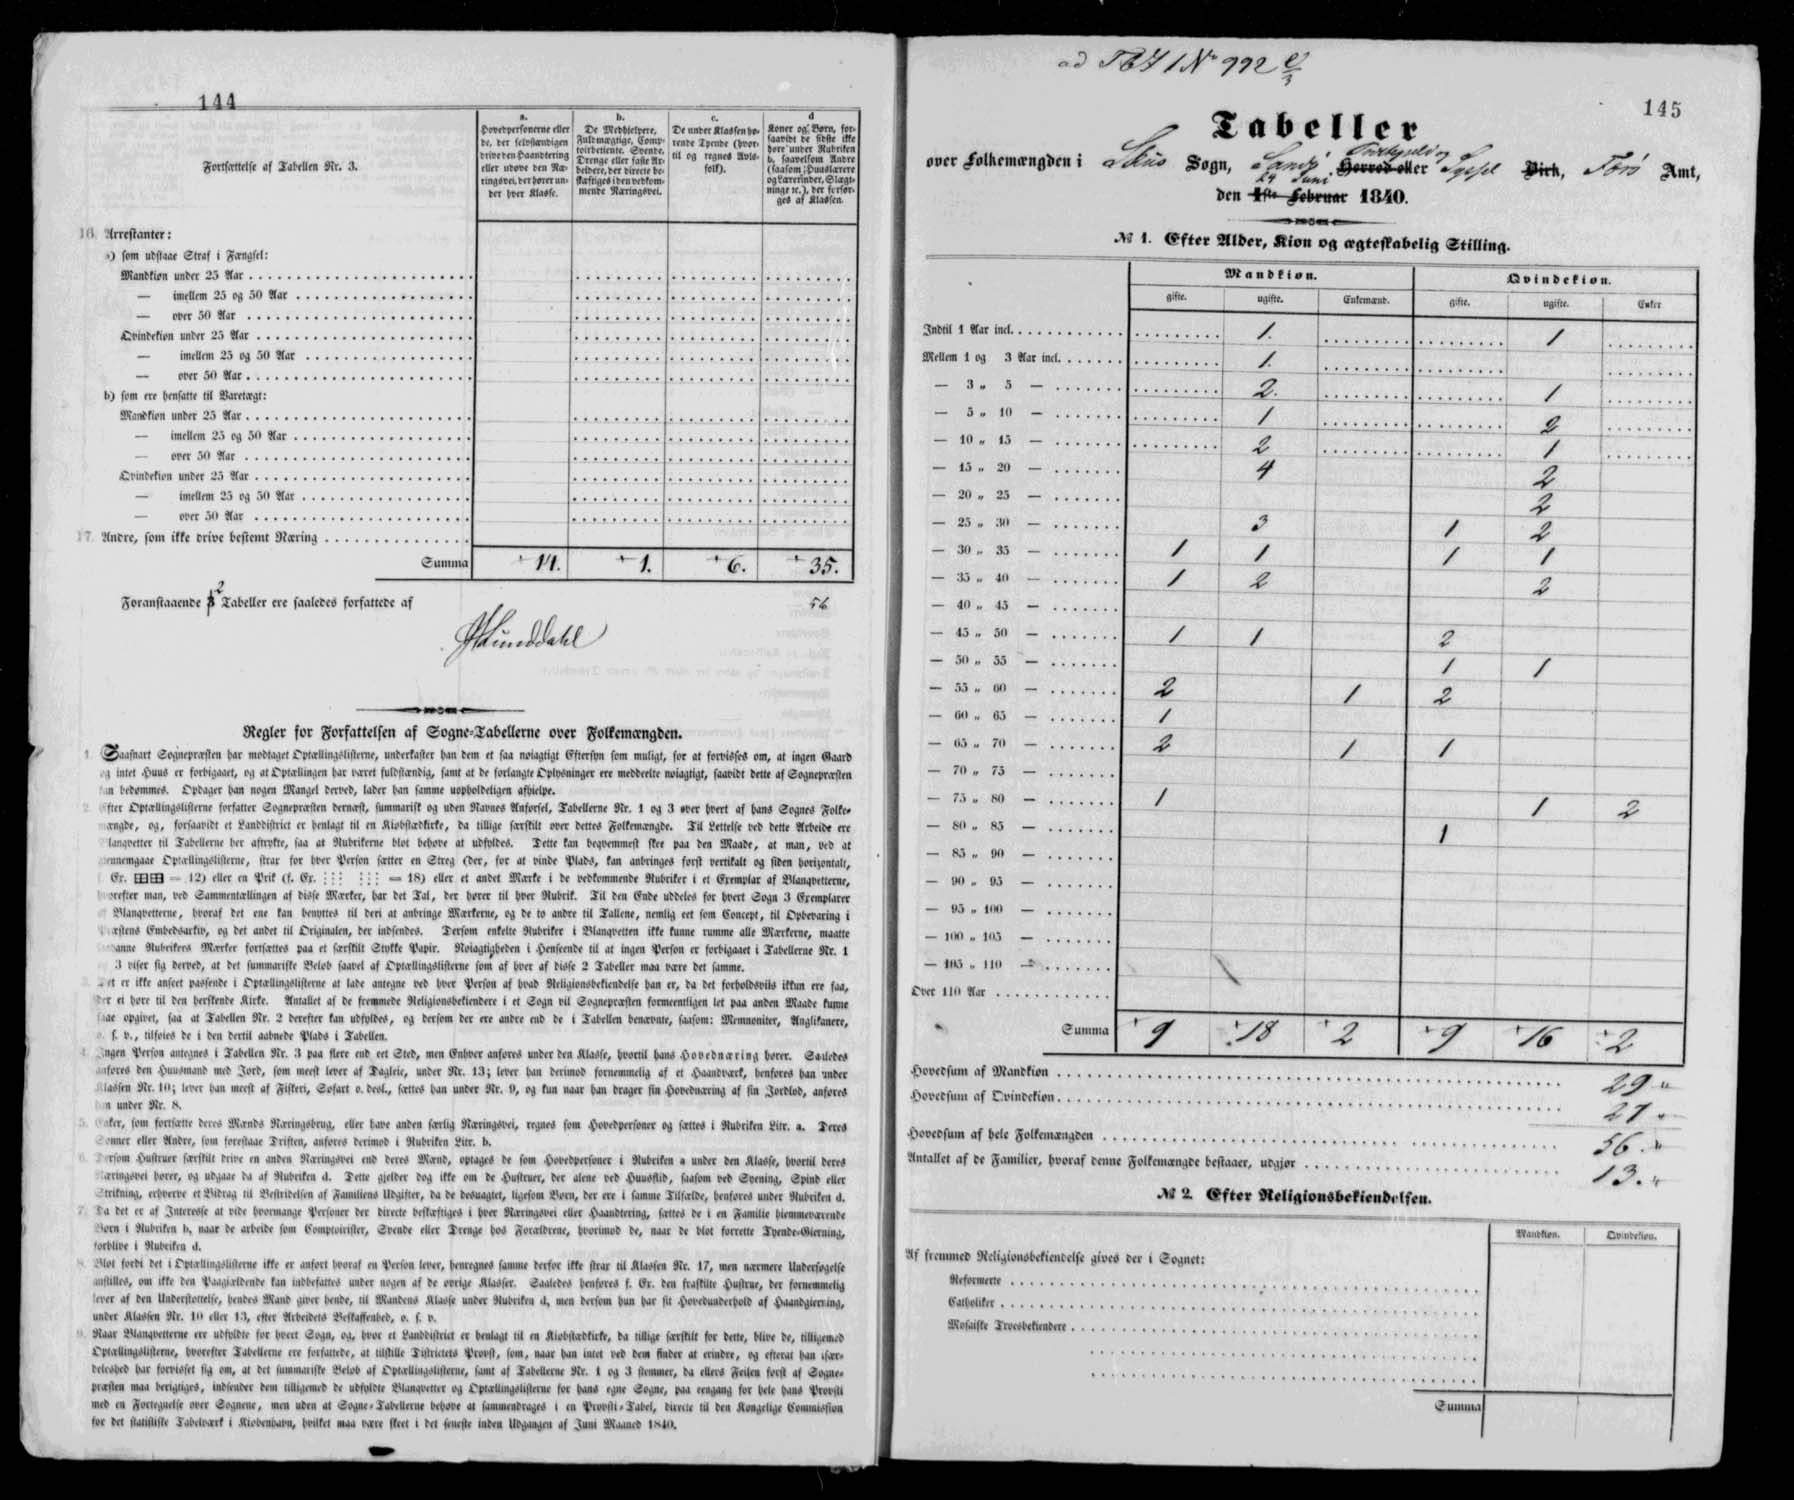 144
Fortsættelse af Tabellen Nr. 3.
a.
Hovedpersonerne eller
de, der selvstændigen
drive den Haandtering
eller udøve den Næ-
ringsvei, der hører un-
der hver Klasse.
b.
De Medhjelpere,
Fuldmægtige, Comp-
toirbetiente, Svende,
Drenge eller faste Ar-
beidere, der directe be-
skæftiges i den vedkom-
mende Næringsvei.
c.
De under Klassen hø-
rende Tyende (hvor-
til og regnes Avls-
folk).
d
Koner og Børn, for-
saavidt de sidste ikke
høre under Rubriken
b, saavelsom Andre
(saasom Huuslærere
og Lærerinder, Slægt-
ninge ɾc.), der forsør-
ges af Klassen.
16. Arrestanter:
a) som udstaae Straf i Fængsel:
Mandkiøn under 25 Aar
— imellem 25 og 50 Aar
— over 50 Aar
Qvindekiøn under 25 Aar
— imellem 25 og 50 Aar
— over 50 Aar
b) som ere hensatte til Varetægt:
Mandkiøn under 25 Aar
— imellem 25 og 50 Aar
— over 50 Aar
Qvindekiøn under 25 Aar
— imellem 25 og 50 Aar
— over 50 Aar
17. Andre, som ikke drive bestemt Næring
Summa 14. 1. 6. 35.
Foranstaaende 3 2 Tabeller ere saaledes forfattede af
56
Regler for Forfattelsen af Sogne-Tabellerne over Folkemængden.
1. Saasnart Sognepræsten har modtaget Optællingslisterne, underkaster han dem et saa nøiagtigt Eftersyn som muligt, for at forvisses om, at ingen Gaard
og intet Huus er forbigaaet, og at Optællingen har været fuldstændig, samt at de forlangte Oplysninger ere meddeelte nøiagtigt, saavidt dette af Sognepræsten
kan bedømmes. Opdager han nogen Mangel derved, lader han samme uopholdeligen afhielpe.
2. Efter Optællingslisterne forfatter Sognepræsten dernæst, summarisk og uden Navnes Anførsel, Tabellerne Nr. 1 og 3 over hvert af hans Sognes Folke-
mængde, og, forsaavidt et Landdistrict er henlagt til en Kiøbstædkirke, da tillige særskilt over dettes Folkemængde. Til Lettelse ved dette Arbeide ere
Blanqvetter til Tabellerne her aftrykte, saa at Rubrikerne blot behøve at udfyldes. Dette kan beqvemmest skee paa den Maade, at man, ved at
giennemgaae Optællingslisterne, strax for hver Person sætter en Streg (der, for at vinde Plads, kan anbringes først vertikalt og siden horizontalt,
f. Ex. = 12) eller en Prik (f. Ex. ⋮⋮⋮ ⋮⋮⋮ = 18) eller et andet Mærke i de vedkommende Rubriker i et Exemplar af Blanqvetterne,
hvorefter man, ved Sammentællingen af disse Mærker, har det Tal, der hører til hver Rubrik. Til den Ende uddeles for hvert Sogn 3 Exemplarer
af Blanqvetterne, hvoraf det ene kan benyttes til deri at anbringe Mærkerne, og de to andre til Tallene, nemlig eet som Concept, til Opbevaring i
Præstens Embedsarkiv, og det andet til Originalen, der indsendes. Dersom enkelte Rubriker i Blanqvetten ikke kunne rumme alle Mærkerne, maatte
saadanne Rubrikers Mærker fortsættes paa et særskilt Stykke Papir. Nøiagtigheden i Henseende til at ingen Person er forbigaaet i Tabellerne Nr. 1
og 3 viser sig derved, at det summariske Beløb saavel af Optællingslisterne som af hver af disse 2 Tabeller maa være det samme.
3. Det er ikke anseet passende i Optællingslisterne at lade antegne ved hver Person af hvad Religionsbekiendelse han er, da det forholdsviis ikkun ere faa,
der ei høre til den herskende Kirke. Antallet af de fremmede Religionsbekiendere i et Sogn vil Sognepræsten formeentligen let paa anden Maade kunne
faae opgivet, saa at Tabellen Nr. 2 derefter kan udfyldes, og dersom der ere andre end de i Tabellen benævnte, saasom: Memnoniter, Anglikanere,
o. s. v., tilføies de i den dertil aabnede Plads i Tabellen.
4. Ingen Person antegnes i Tabellen Nr. 3 paa flere end eet Sted, men Enhver anføres under den Klasse, hvortil hans Hovednæring hører. Saaledes
anføres den Huusmand med Jord, som meest lever af Dagleie, under Nr. 13; lever han derimod fornemmelig af et Haandværk, henføres han under
Klassen Nr. 10; lever han meest af Fiskeri, Søfart o. desl., sættes han under Nr. 9, og kun naar han drager sin Hovednæring af sin Jordlod, anføres
han under Nr. 8.
5. Enker, som fortsætte deres Mænds Næringsbrug, eller have anden særlig Næringsvei, regnes som Hovedpersoner og sættes i Rubriken Litr. a. Deres
Sønner eller Andre, som forestaae Driften, anføres derimod i Rubriken Litr. b.
6. Dersom Hustruer særskilt drive en anden Næringsvei end deres Mænd, optages de som Hovedpersoner i Rubriken a under den Klasse, hvortil deres
Næringsvei hører, og udgaae da af Rubriken d. Dette gjelder dog ikke om de Hustruer, der alene ved Huusflid, saasom ved Syening, Spind eller
Strikning, erhverve et Bidrag til Bestridelsen af Familiens Udgifter, da de desuagtet, ligesom Børn, der ere i samme Tilfælde, henføres under Rubriken d.
7. Da det er af Interesse at vide hvormange Personer der directe beskæftiges i hver Næringsvei eller Haandtering, sættes de i en Familie hiemmeværende
Børn i Rubriken b, naar de arbeide som Comptoirister, Svende eller Drenge hos Forældrene, hvorimod de, naar de blot forrette Tyende-Gierning,
forblive i Rubriken d.
8. Blot fordi det i Optællingslisterne ikke er anført hvoraf en Person lever, henregnes samme derfor ikke strax til Klassen Nr. 17, men nærmere Undersøgelse
anstilles, om ikke den Paagjældende kan indbefattes under nogen af de øvrige Klasser. Saaledes henføres f. Ex. den fraskilte Hustrue, der fornemmelig
lever af den Understøttelse, hendes Mand giver hende, til Mandens Klasse under Rubriken d, men dersom hun har sit Hovedunderhold af Haandgierning,
under Klassen Nr. 10 eller 13, efter Arbeidets Beskaffenhed, o. s. v.
9. Naar Blanqvetterne ere udfyldte for hvert Sogn, og, hvor et Landdistrict er henlagt til en Kiøbstædkirke, da tillige særskilt for dette, blive de, tilligemed
Optællingslisterne, hvorefter Tabellerne ere forfattede, at tilstille Districtets Provst, som, naar han intet ved dem finder at erindre, og efterat han især-
deleshed har forvisset sig om, at det summariske Beløb af Optællingslisterne, samt af Tabellerne Nr. 1 og 3 stemmer, da ellers Feilen først af Sogne-
præsten maa berigtiges, indsender dem tilligemed de udfyldte Blanqvetter og Optællingslisterne for hans egne Sogne, paa eengang for hele hans Provsti
med en Fortegnelse over Sognene, men uden at Sogne-Tabellerne behøve at sammendrages i en Provsti-Tabel, directe til den Kongelige Commission
for det statistiske Tabelværk i Kiøbenhavn, hvilket maa være skeet i det seneste inden Udgangen af Juni Maaned 1840.
145
Tabeller
over Folkemængden i Skuø Sogn, Sandø Præstegjeld og Herred eller Syssel Birk, Færø Amt,
24 Juni
den 1ste Februar 1840.
№ 1. Efter Alder, Kiøn og ægteskabelig Stilling.
Mandkiøn. Qvindekiøn.
gifte. ugifte. Enkemænd. gifte. ugifte. Enker
Indtil 1 Aar incl. 1. 1
Mellem 1 og 3 Aar incl. 1.
— 3 „ 5 — 2. 1
— 5 „ 10 — 1 2
— 10 „ 15 — 2 1
— 15 „ 20 — 4 2
— 20 „ 25 — 2
— 25 „ 30 — 3 1 2
— 30 „ 35 — 1 1 1 1
— 35 „ 40 — 1 2 2
— 40 „ 45 —
— 45 „ 50 — 1 1 2
— 50 „ 55 — 1 1
— 55 „ 60 — 2 1 2
— 60 „ 65 — 1
— 65 „ 70 — 2 1 1
— 70 „ 75 —
— 75 „ 80 — 1 1 2
— 80 „ 85 — 1
— 85 „ 90 —
— 90 „ 95 —
— 95 „ 100 —
— 100 „ 105 —
— 105 „ 110 —
Over 110 Aar
Summa 9 18 2 9 16 2
Hovedsum af Mandkiøn 29 "
Hovedsum af Qvindekiøn 27 "
Hovedsum af hele Folkemængden 56. "
Antallet af de Familier, hvoraf denne Folkemængde bestaaer, udgjør 13. "
№ 2. Efter Religionsbekiendelsen.
Mandkiøn. Qvindekiøn.
Af fremmed Religionsbekiendelse gives der i Sognet:
Reformerte
Catholiker
Mosaiske Troesbekiendere
Summa